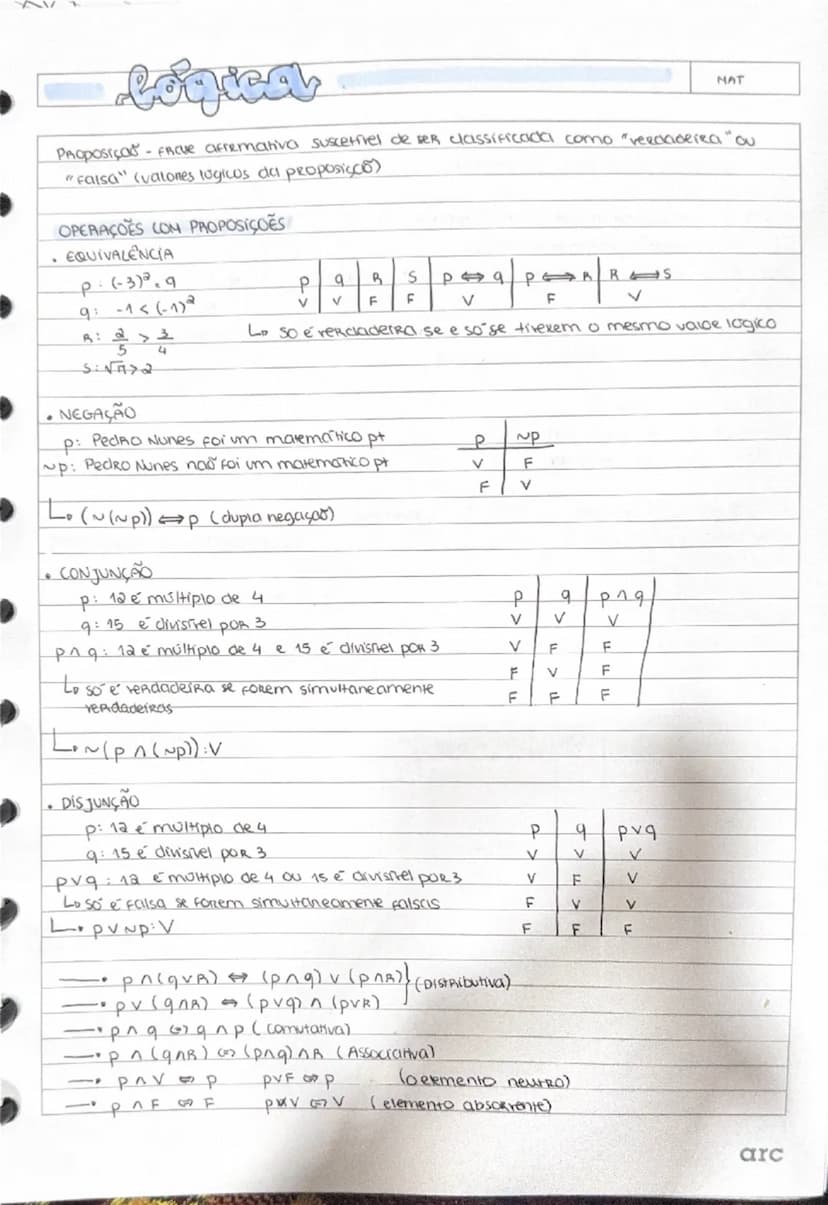 Lógica
MAT
Proposição - frase afirmativa suscetível de ser classificada como "verdadeira" ou
"falsa" (valores lógicos da proposição)
OPERAÇÕES COM PROPOSIÇÕES
• EQUIVALÊNCIA
p: (-3)² = 9
q: -1 < (-1)²
R: 2/5 > 3/4
S: √π > 2
p | q | R | S | p ⟺ q | p ⟺ R | R ⟺ S
V | V | F | F | V | F | V
↳ só é verdadeira se e só se tiverem o mesmo valor lógico
• NEGAÇÃO
p: Pedro Nunes foi um matemático pt
~p: Pedro Nunes não foi um matemático pt
p | ~p
V | F
F | V
↳ (~(~p)) ⟺ p (dupla negação)
• CONJUNÇÃO
p: 12 é múltiplo de 4
q: 15 é divisível por 3
p ∧ q: 12 é múltiplo de 4 e 15 é divisível por 3
↳ só é verdadeira se forem simultaneamente
verdadeiras
p | q | p ∧ q
V | V | V
V | F | F
F | V | F
F | F | F
↳ ~(p ∧ (~p)): V
• DISJUNÇÃO
p: 12 é múltiplo de 4
q: 15 é divisível por 3
p ∨ q: 12 é múltiplo de 4 ou 15 é divisível por 3
↳ só é falsa se forem simultaneamente falsas
↳ p ∨ ~p: V
p | q | p ∨ q
V | V | V
V | F | V
F | V | V
F | F | F
→ p ∧ (q ∨ R) ⟺ (p ∧ q) ∨ (p ∧ R) } (Distributiva)
→ p ∨ (q ∧ R) ⟺ (p ∨ q) ∧ (p ∨ R)
→ p ∧ q ⟺ q ∧ p (comutativa)
→ p ∧ (q ∧ R) ⟺ (p ∧ q) ∧ R (Associativa)
→ p ∧ V ⟺ p p ∨ F ⟺ p (elemento neutro)
→ p ∧ F ⟺ F p ∨ V ⟺ V (elemento absorvente)
arc